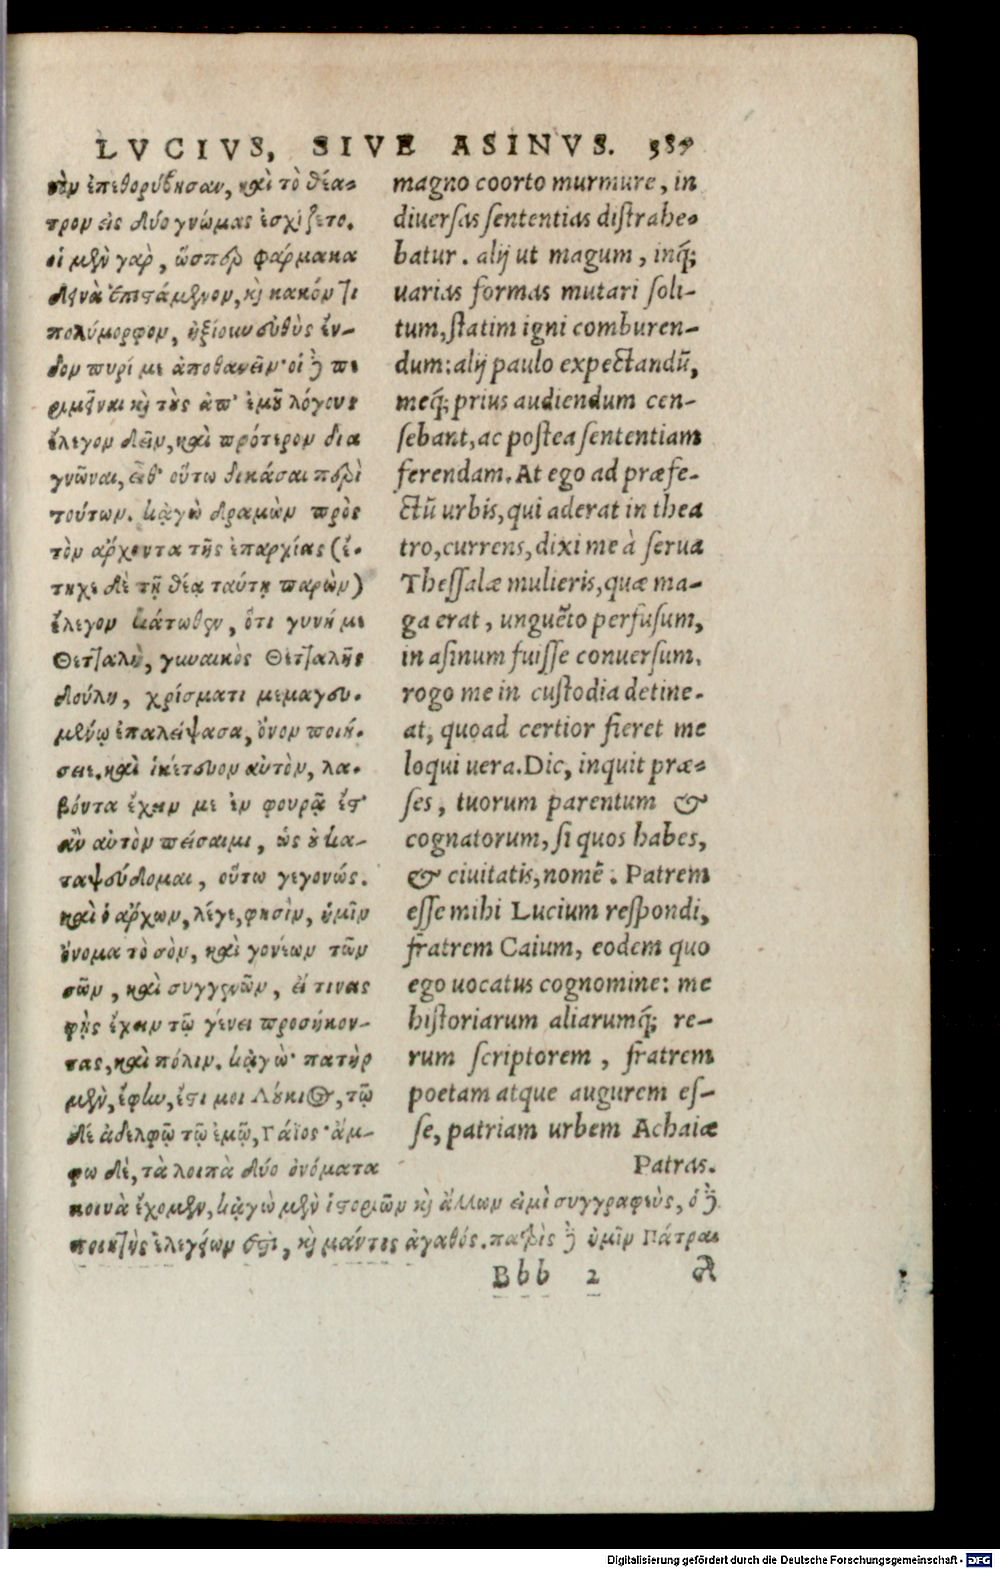 LVCIVS, SIVE ASINVS. 589
σὸν ἐπεθορύβησαν, καὶ τὸ θέα-
τρον εἰς δύο γνώμας ἐσχίζετο.
οἱ μὲν γὰρ, ὥσπερ φάρμακα
δεινὰ ἐπιστάμενον, κὶ κακόν τι
πολύμορφον, ἠξίουν εὐθὺς ἔν-
δον πυρί με ἀποθανεῖν· οἱ δὲ πε
ριμεῖναι κὶ τοὺς ἀπ' ἐμοῦ λόγους
ἔλεγον δεῖν, καὶ πρότερον δια
γνῶναι, εἶθ' οὕτω δικάσαι περὶ
τούτων. κᾀγὼ δραμὼν πρὸς
τὸν ἄρχοντα τῆς ἐπαρχίας (ἔ-
τυχε δὲ τῇ θέᾳ ταύτῃ παρὼν)
ἔλεγον κάτωθεν, ὅτι γυνή με
Θετταλὴ, γυναικὸς Θετταλῆς
δούλη, χρίσματι μεμαγευ-
μένῳ ἐπαλείψασα, ὄνον ποιή-
σειε. καὶ ἱκέτευον αὐτὸν, λα-
βόντα ἔχειν με ἐν φουρᾷ ἔστ'
ἂν αὐτὸν πείσαιμι, ὡς οὐ κα-
ταψεύδομαι, οὕτω γεγονώς.
καὶ ὁ ἄρχων, λέγε, φησὶν, ὑμῖν
ὄνομα τὸ σὸν, καὶ γονέων τῶν
σῶν, καὶ συγγενῶν, εἴ τινας
φῂς ἔχειν τῷ γένει προσήκον-
τας, καὶ πόλιν. κᾀγὼ· πατὴρ
μὲν, ἔφην, ἔστι μοι Λούκιος, τῷ
δὲ ἀδελφῷ τῷ ἐμῷ, Γάϊος· ἄμ-
φω δὲ, τὰ λοιπὰ δύο ὀνόματα
κοινὰ ἔχομεν, κᾀγὼ μὲν ἱστοριῶν κὶ ἄλλων εἰμὶ συγγραφεὺς, ὁ δὲ
ποιητὴς ἐλεγείων ἐστὶ, κὶ μάντις ἀγαθός. πατρὶς δὲ ὑμῖν Πάτραι
magno coorto murmure, in
diuersas sententias distrahe-
batur. alij ut magum, inq́;
uarias formas mutari soli-
tum, statim igni comburen-
dum: alij paulo expectandũ,
meq́; prius audiendum cen-
sebant, ac postea sententiam
ferendam. At ego ad præfe-
ctũ urbis, qui aderat in thea
tro, currens, dixi me à serua
Thessalæ mulieris, quæ ma-
ga erat, unguẽto perfusum,
in asinum fuisse conuersum.
rogo me in custodia detine-
at, quoad certior fieret me
loqui uera. Dic, inquit præ-
ses, tuorum parentum &
cognatorum, si quos habes,
& ciuitatis, nomẽ. Patrem
esse mihi Lucium respondi,
fratrem Caium, eodem quo
ego uocatus cognomine: me
historiarum aliarumq́; re-
rum scriptorem, fratrem
poetam atque augurem es-
se, patriam urbem Achaiæ
Patras.
Bbb 2
Digitalisierung gefördert durch die Deutsche Forschungsgemeinschaft - DFG